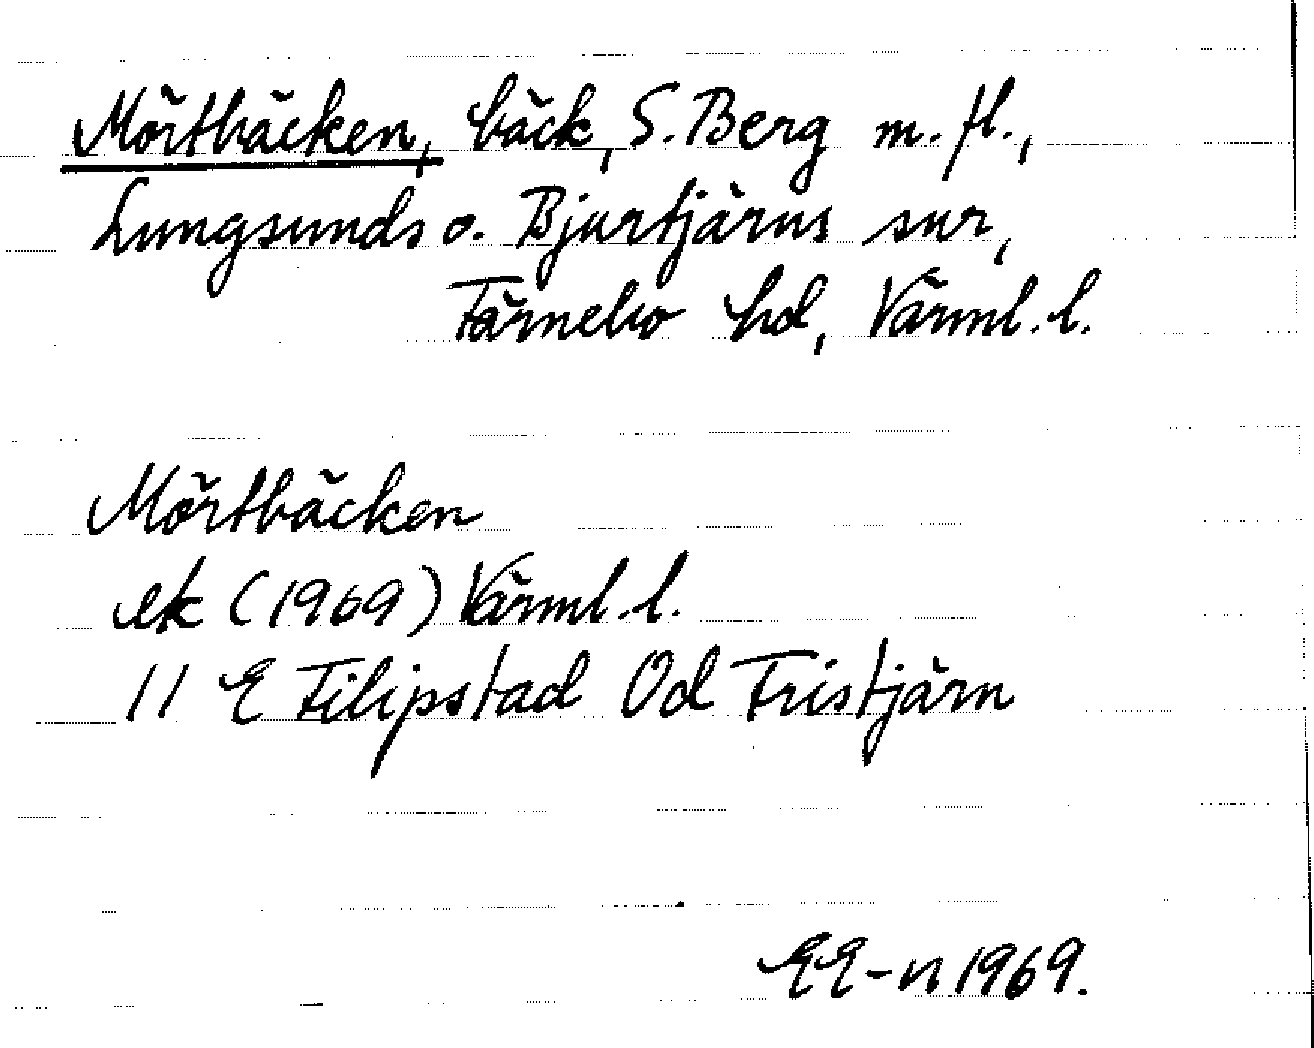 Mörtbäcken, bäck, S. Berg m. fl.,
Lungsunds o. Bjurtjärns snr,
Färnebo hd, Värml. l.
Mörtbäcken
ek (1969) Värml. l.
11 E Filipstad 0d Fristjärn
EE-n 1969.